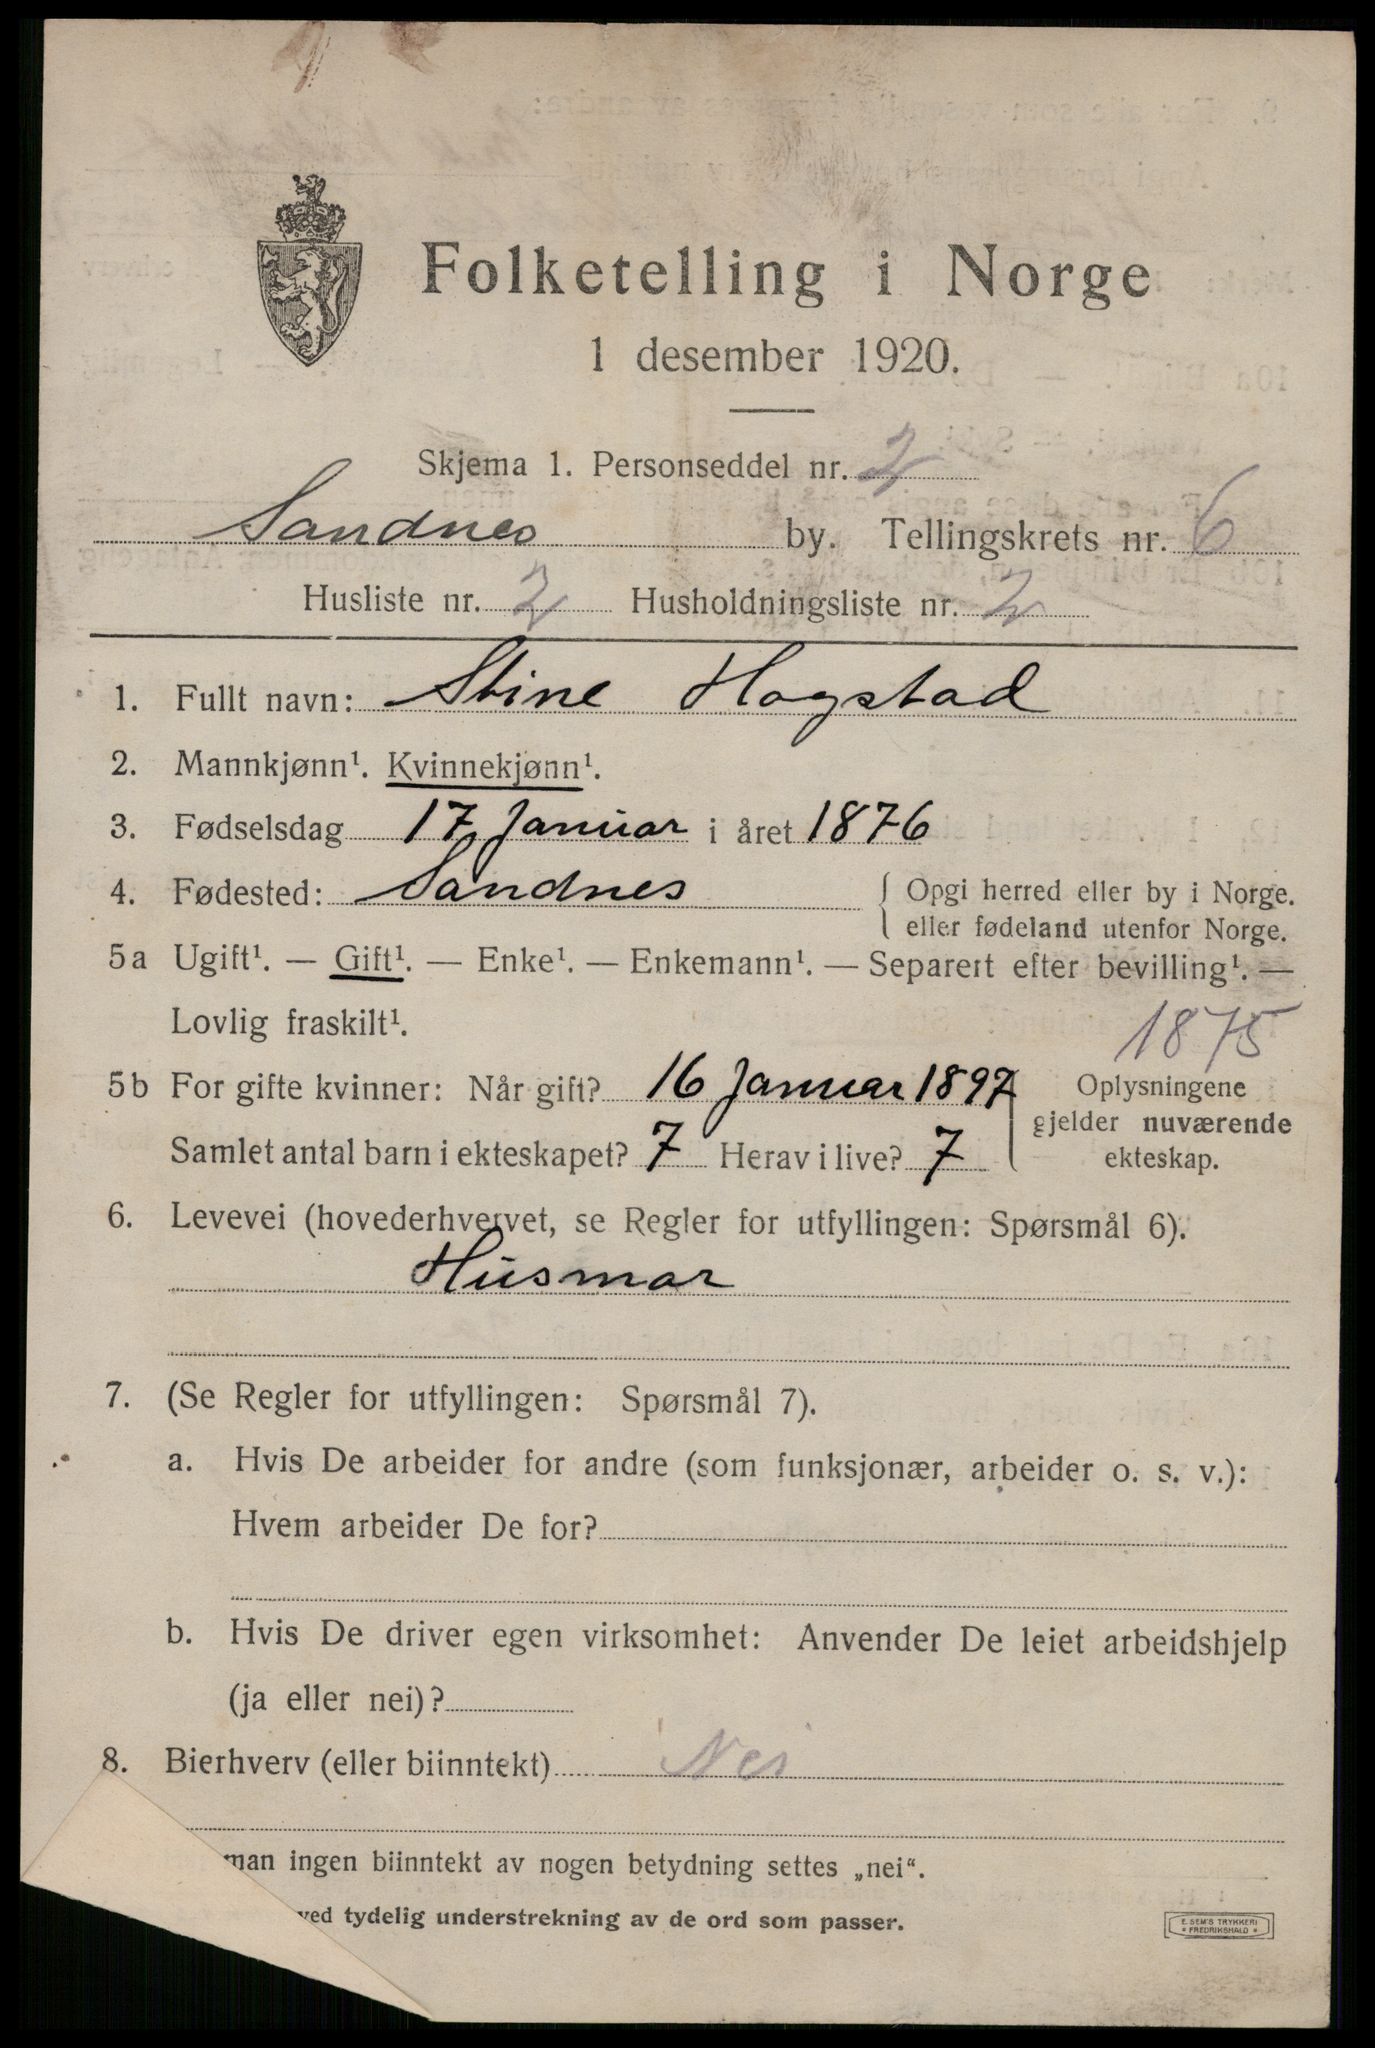 Folketelling i Norge
1 desember 1920.
Skjema 1. Personseddel nr. 2
Sandnes by. Tellingskrets nr. 6
Husliste nr. 2 Husholdningsliste nr. 2
1. Fullt navn: Stine Hogstad
2. Mannkjønn¹. Kvinnekjønn¹.
3. Fødselsdag 17 Januar i året 1876
4. Fødested: Sandnes { Opgi herred eller by i Norge.
eller fødeland utenfor Norge.
5a Ugift¹. — Gift¹. — Enke¹. — Enkemann¹. — Separert efter bevilling¹. —
Lovlig fraskilt¹.
1875
5b For gifte kvinner: Når gift? 16 Januar 1897 Oplysningene
gjelder nuværende
Samlet antal barn i ekteskapet? 7 Herav i live? 7 ekteskap.
6. Levevei (hovederhvervet, se Regler for utfyllingen: Spørsmål 6).
Husmor
7. (Se Regler for utfyllingen: Spørsmål 7).
a. Hvis De arbeider for andre (som funksjonær, arbeider o. s. v.):
Hvem arbeider De for?
b. Hvis De driver egen virksomhet: Anvender De leiet arbeidshjelp
(ja eller nei)?
8. Bierhverv (eller biinntekt) Nei
man ingen biinntekt av nogen betydning settes „nei“.
ved tydelig understrekning av de ord som passer.
E. SEM'S TRYKKERI
* FREDRIKSHALD *